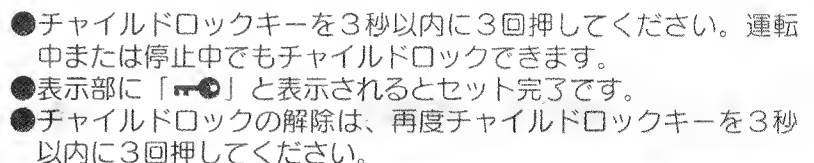 ●チャイルドロックキーを3秒以内に3回押してください。運転
中または停止中でもチャイルドロックできます。
●表示部に「🔑」と表示されるとセット完了です。
●チャイルドロックの解除は、再度チャイルドロックキーを3秒
以内に3回押してください。